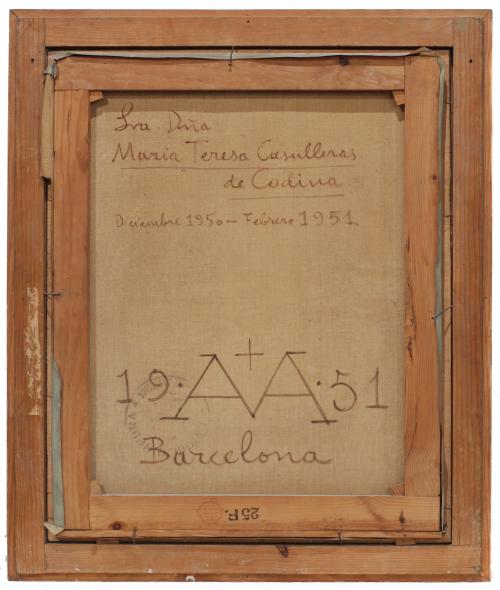 Sra. Dña
María Teresa Casulleras
de Codina
Diciembre 1950 - Febrero 1951
19·A+A·51
Barcelona
25F.